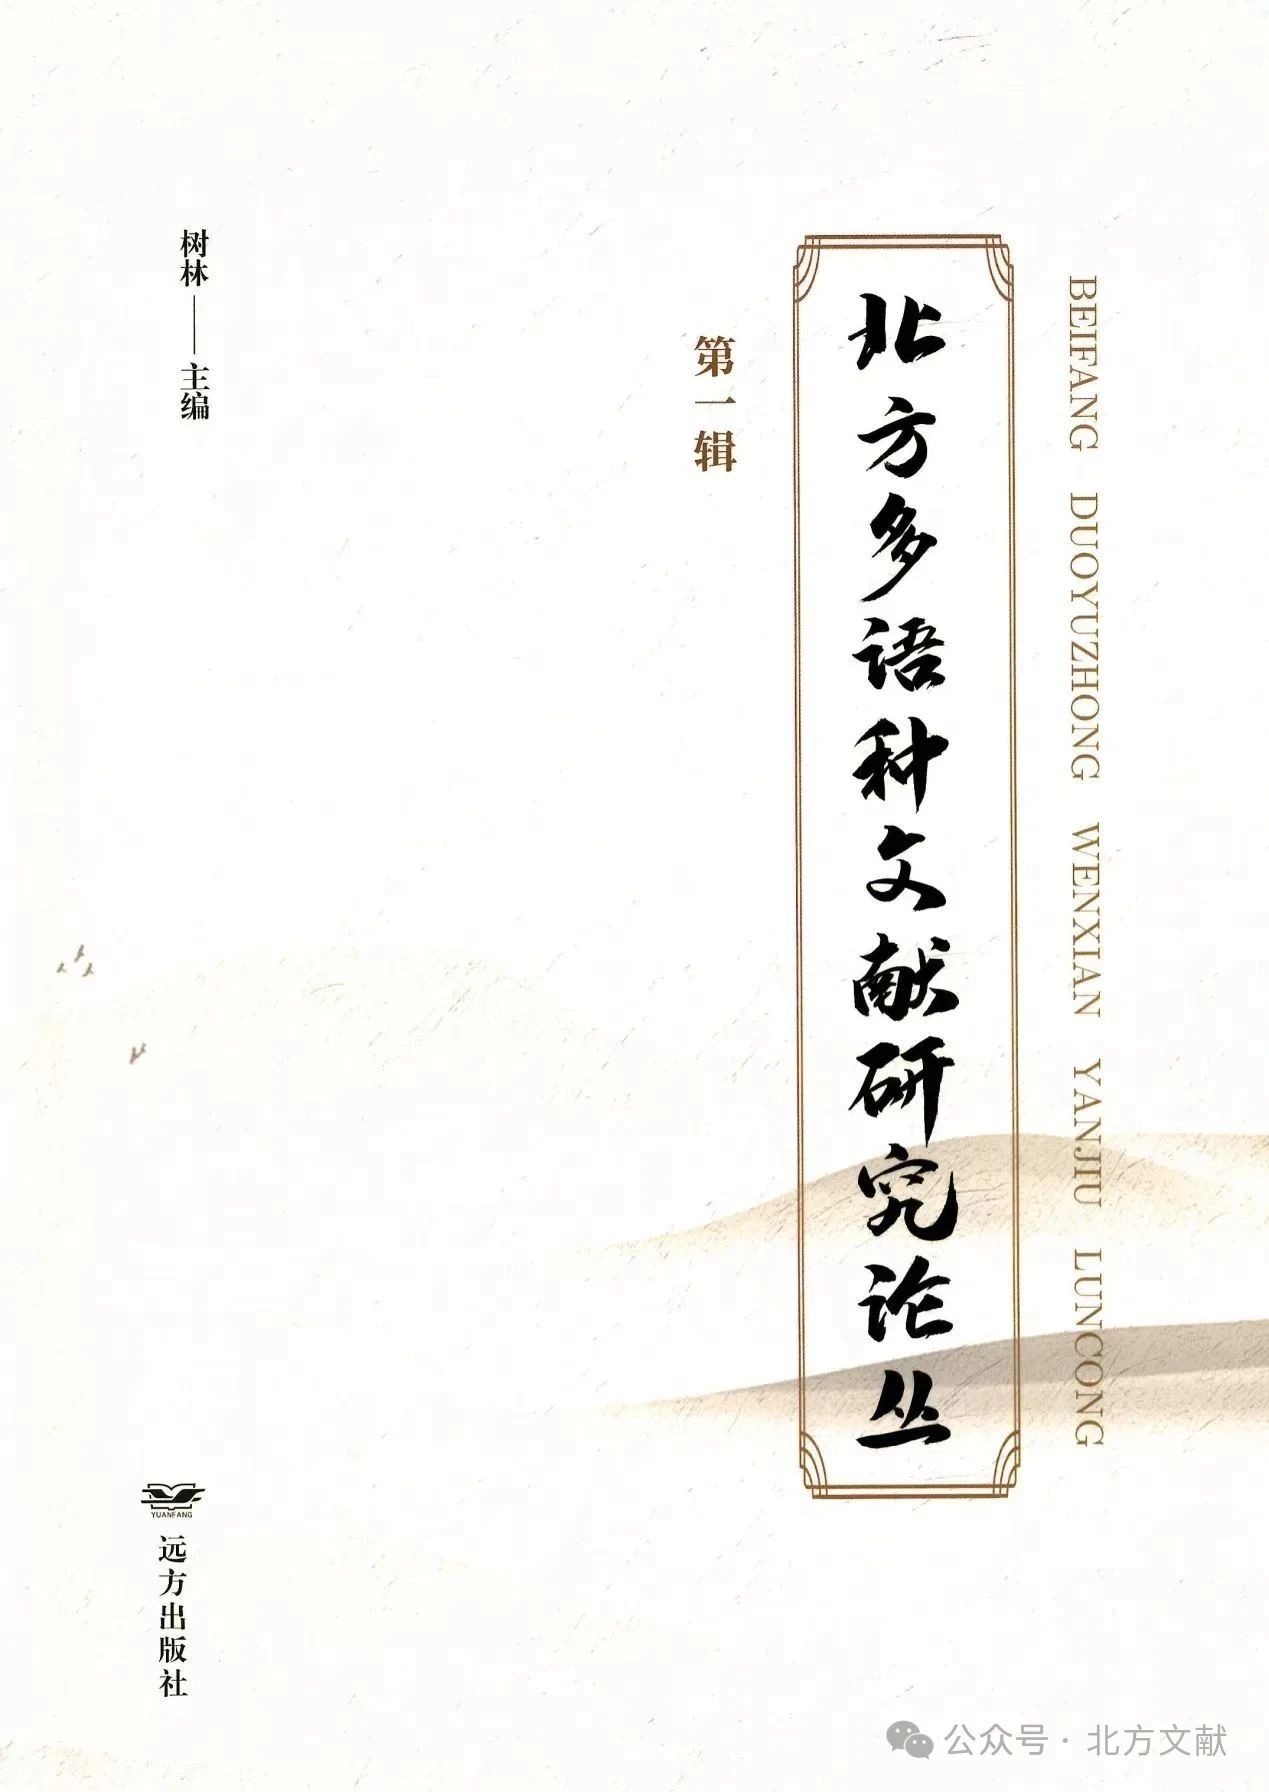 BEIFANG DUOYUZHONG WENXIAN YANJIU LUNCONG
北方多语种文献研究论丛
第一辑
树林——主编
YUANFANG
远方出版社
公众号·北方文献